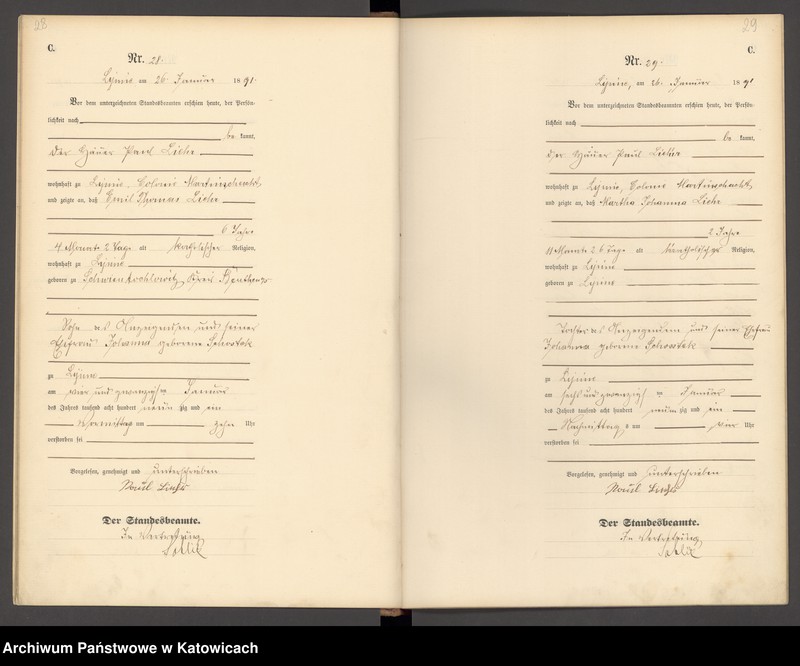 28
C.
Nr. 28.
Lipine am 26. Januar 1891.
Vor dem unterzeichneten Standesbeamten erschien heute, der Persön-
lichkeit nach
be kannt,
der Häuer Paul
wohnhaft zu Lipine, Colonie Martinschacht
und zeigte an, daß Emil Thomas
6 Jahre
4 Monate 2 Tage alt katholischer Religion,
wohnhaft zu Lipine
geboren zu Kreis Beuthen
Sohn des Anzeigenden und seiner
Ehefrau Johanna geborene
zu Lipine
am vier und zwanzigsten Januar
des Jahres tausend acht hundert neun zig und ein
Vormittag um zehn Uhr
verstorben sei
Vorgelesen, genehmigt und unterschrieben
Paul
Der Standesbeamte.
In Vertretung
29
C.
Nr. 29.
Lipine, am 26. Januar 1891
Vor dem unterzeichneten Standesbeamten erschien heute, der Persön-
lichkeit nach
be kannt,
der Häuer Paul
wohnhaft zu Lipine, Colonie Martinschacht
und zeigte an, daß Martha Johanna
2 Jahre
11 Monate 26 Tage alt katholischer Religion,
wohnhaft zu Lipine
geboren zu Lipine
Tochter des Anzeigenden und seiner Ehefrau
Johanna geborene
zu Lipine
am sechs und zwanzigsten Januar
des Jahres tausend acht hundert neun zig und ein
Nachmittag s um vier Uhr
verstorben sei
Vorgelesen, genehmigt und unterschrieben
Paul
Der Standesbeamte.
In Vertretung
Archiwum Państwowe w Katowicach